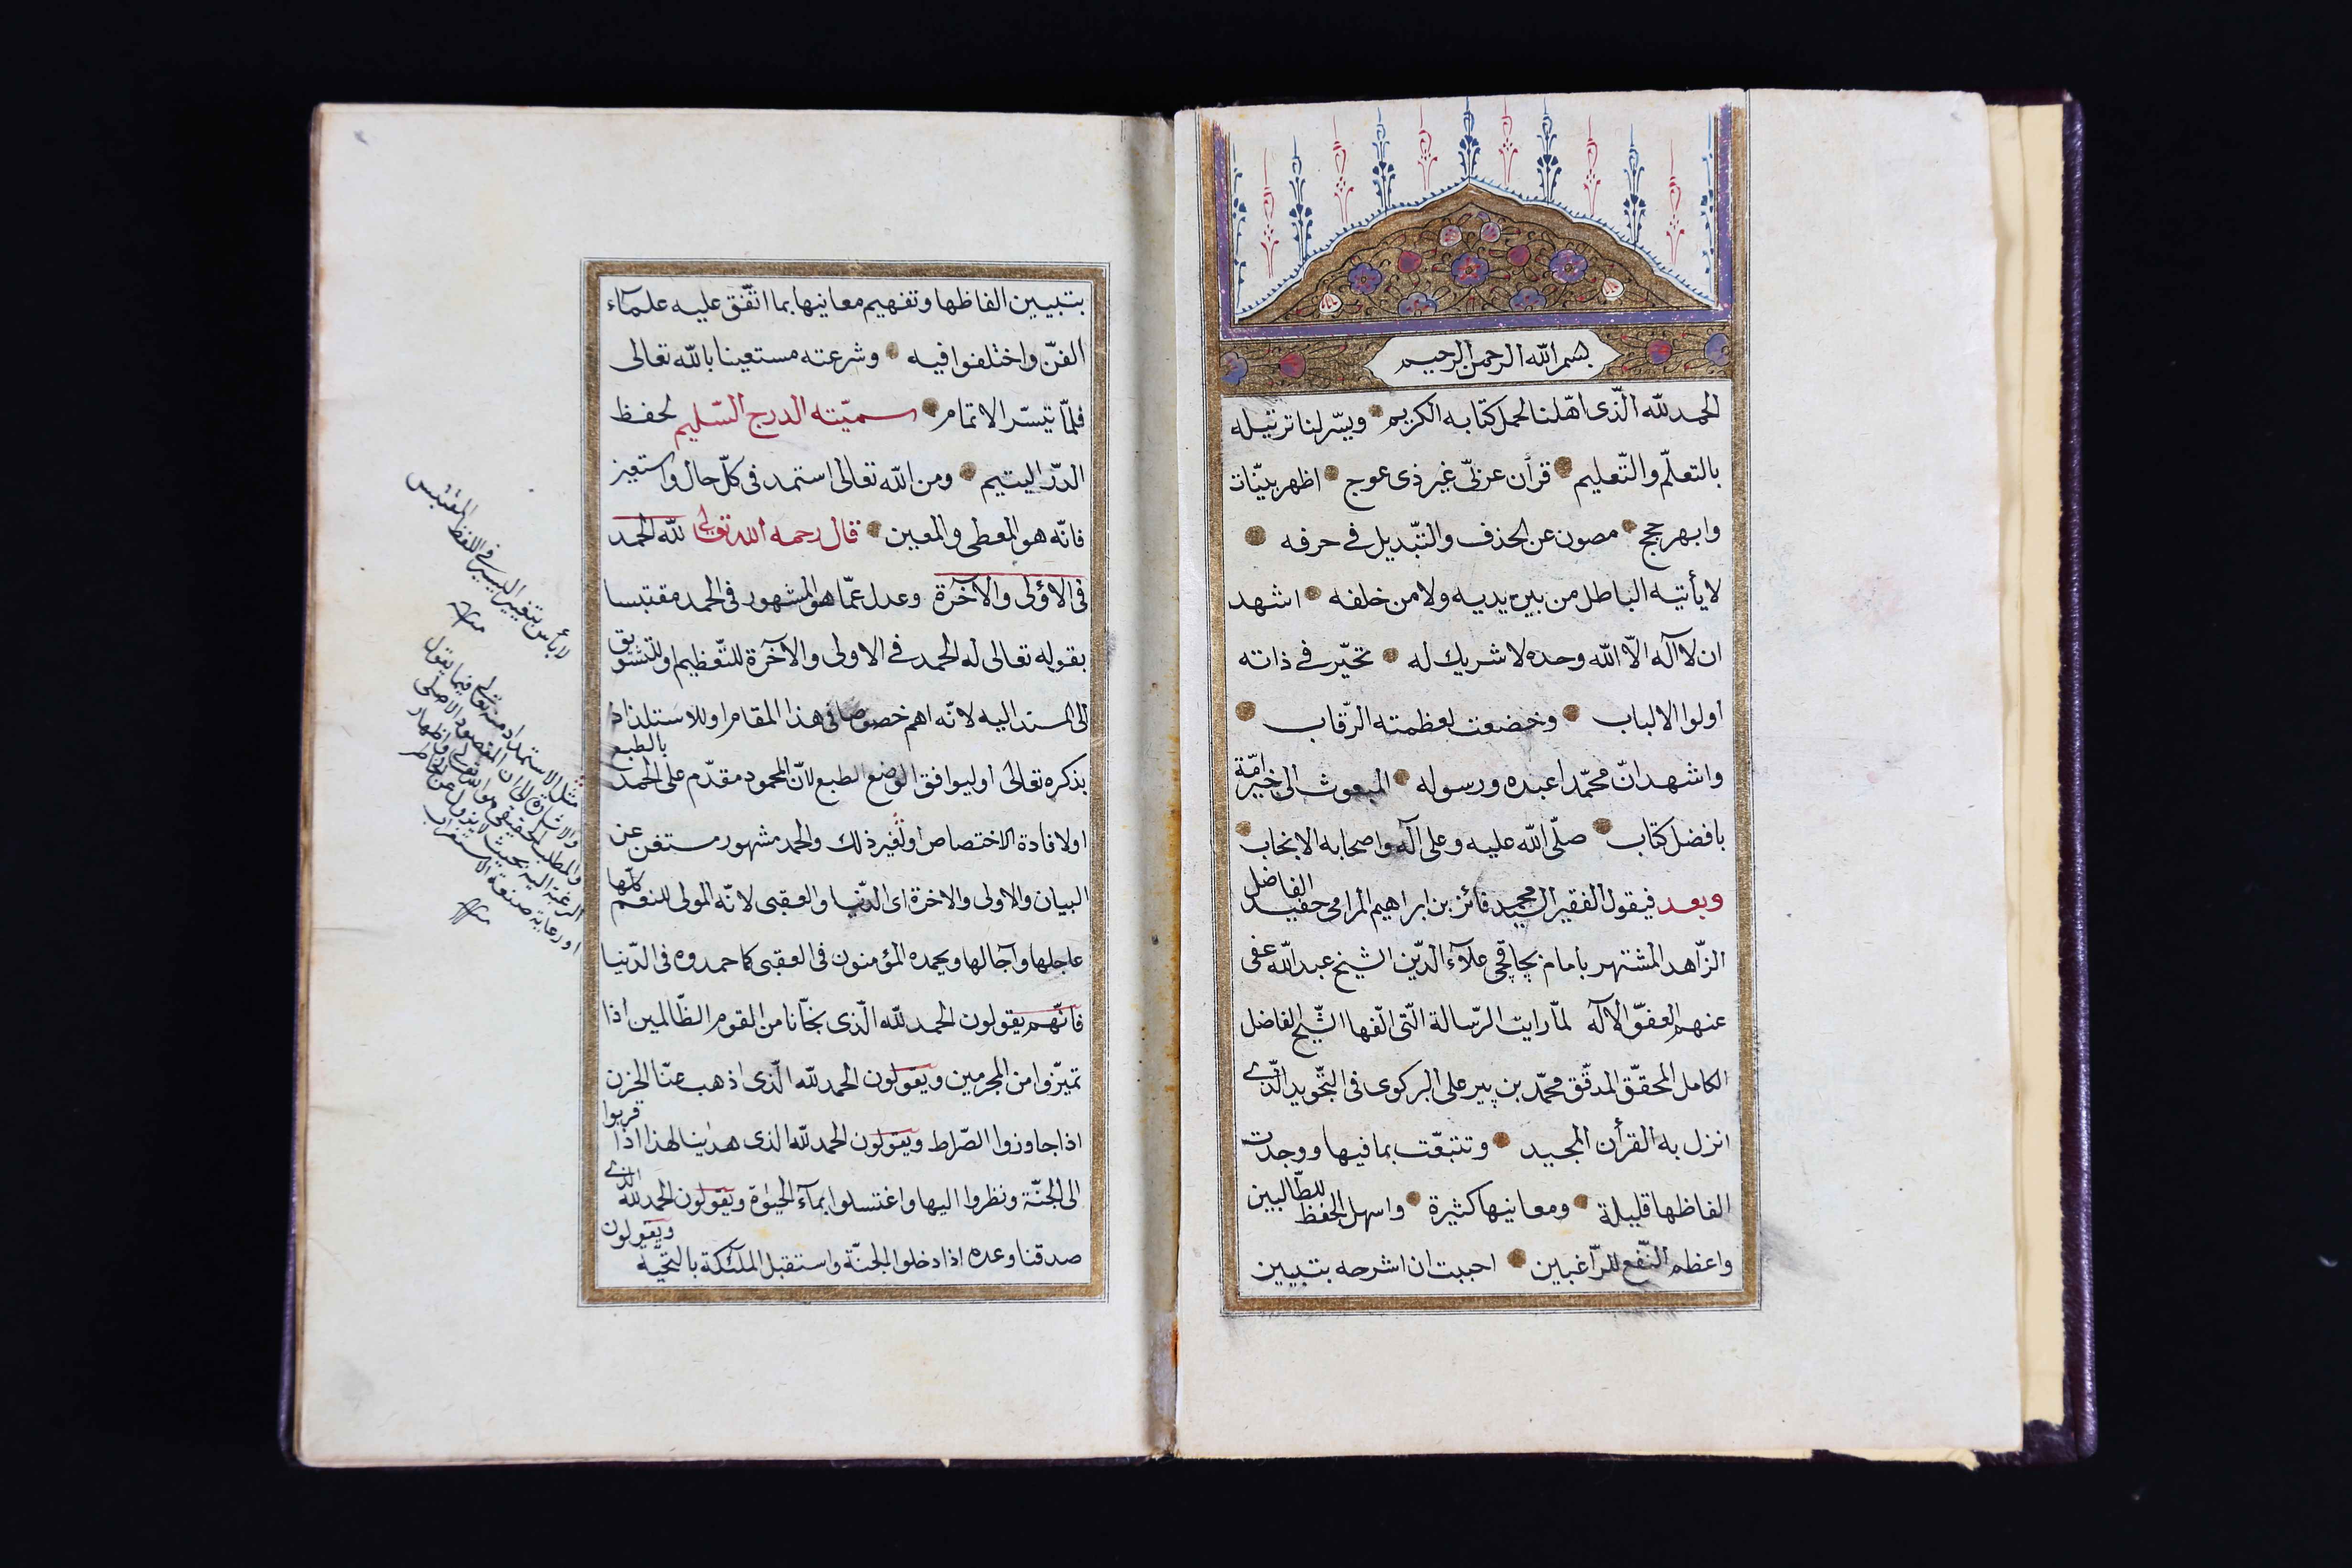 بسم الله الرحمن الرحيم
الحمد لله الّذى اهّلنا لحمل كتابه الكريم ويسّر لنا ترتيله
بالتعلّم والتّعليم قرآن عربىّ غير ذى عوج اظهر بيّنات
وابهر حجج مصون عن الحذف والتّبديل فى حرفه
لا يأتيه الباطل من بين يديه ولا من خلفه اشهد
ان لا آله الّا الله وحده لا شريك له تحيّر فى ذاته
اولوا الالباب وخضعت لعظمته الرّقاب
واشهد انّ محمّدا عبده ورسوله المبعوث الى خير امّة
بافضل كتاب صلّى الله عليه وعلى آله واصحابه الانجاب
وبعد فيقول الفقير السيد محمد فائز بن ابراهيم المرامى حفيد الفاضل
الزّاهد المشتهر بامام بچاقچى علآء الدّين الشيخ عبد الله عفى
عنهم العفوّ الآله لمّا رايت الرّسالة الّتى الّفها الشّيخ الفاضل
الكامل المحقّق المدقّق محمّد بن پير على البركوى فى التّجويد الّذى
انزل به القرأن المجيد وتتبّعت بما فيها ووجدت
الفاظها قليلة ومعانيها كثيرة واسهل الحفظ للطّالبين
واعظم النّفع للرّاغبين احببت ان اشرحه بتبيين
بتبيين الفاظها وتفهيم معانيها بما اتّفق عليه علمآء
الفنّ واختلفوا فيه وشرعته مستعينا بالله تعالى
فلمّا تيسّر الاتمام سمّيته الدرج السّليم لحفظ
الدّرّ اليتيم ومن الله تعالى استمد فى كلّ حال واستعين
فانّه هو المعطى والمعين قال رحمه الله تعالى لله الحمد
فى الاولى والآخرة وعدل عمّا هو المشهور فى الحمد مقتبسا
بقوله تعالى له الحمد فى الاولى والآخرة للتّعظيم وللتشويق
الى المسند اليه لانّه اهم خصوصا فى هذا المقام او للاستلذاذ
بذكره تعالى او ليوافق الوضع الطبع لانّ المحمود مقدّم على الحمد بالطبع
او لافادة الاختصاص او لغير ذلك والحمد مشهور مستغن عن
البيان والاولى والاخرة اى الدّنيا والعقبى لانّه المولى للنعم كلّها
عاجلها وآجالها ويحمده المؤمنون فى العقبى كما حمدوه فى الدّنيا
فانّهم يقولون الحمد لله الّذى نجّانا من القوم الظّالمين اذا
تميّزوا من المجرمين ويقولون الحمد لله الّذى اذهب عنّا الحزن
اذا جاوزوا الصّراط ويقولون الحمد لله الذى هدينا لهذا اذا قربوا
الى الجنّة ونظروا اليها واغتسلوا بمآء الحيوة ويقولون الحمد لله الذى
صدقنا وعده اذا دخلوا الجنّة واستقبل الملئكة بالتّحيّة ويقولون
لا بأس بتغيير اليسير فى اللفظ المقتبس
منه
مثل الاستمداد منه تعالى فيما يقول
والاشارة الى ان المقصود الاصلى
والمطلب الحقيقى هو الله تعالى واظهار
الرغبة اليه بحيث لا يزول عن الخاطر
او رعاية صنعة الاستغراب
منه